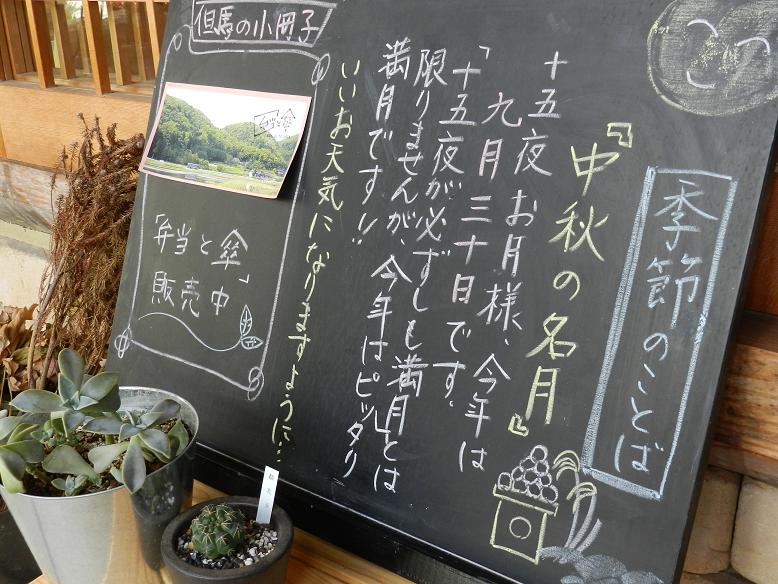 季節のことば
『中秋の名月』
十五夜お月様、今年は
九月三十日です。
「十五夜が必ずしも満月とは
限りませんが、今年はピッタリ
満月です!!
いいお天気になりますように…
但馬の小冊子
弁当と傘
「弁当と傘」
販売中